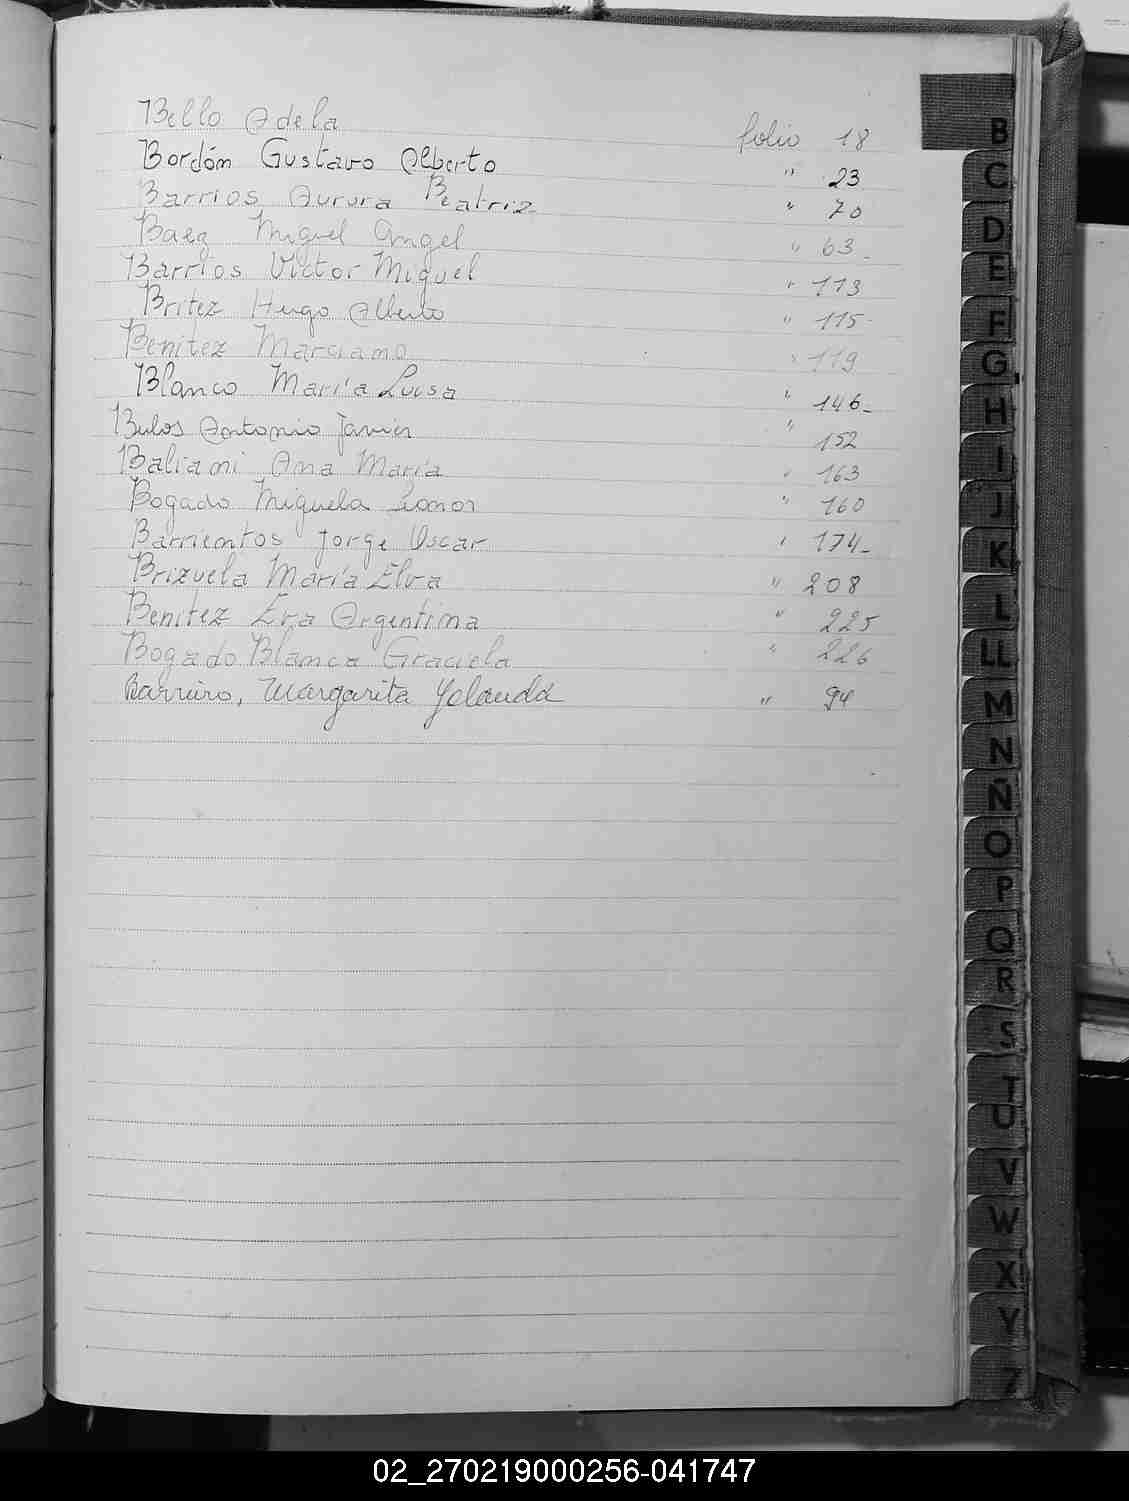 Bello Adela folio 18
Bordón Gustavo Alberto " 23
Barrios Aurora Beatriz " 70
Baez Miguel Angel " 63
Barrios Victor Miguel " 113
Britez Hugo Alberto " 115
Benitez Marciano " 119
Blanco María Luisa " 146
Bulos Antonio Javier " 152
Baliani Ana María " 163
Bogado Miguela Leonor " 160
Barrientos Jorge Oscar " 174
Brizuela María Elva " 208
Benitez Eva Argentina " 225
Bogado Blanca Graciela " 226
Barreiro, Margarita Yolanda " 94
B
C
D
E
F
G
H
I
J
K
L
LL
M
N
Ñ
O
P
Q
R
S
T
U
V
W
X
Y
Z
02_270219000256-041747